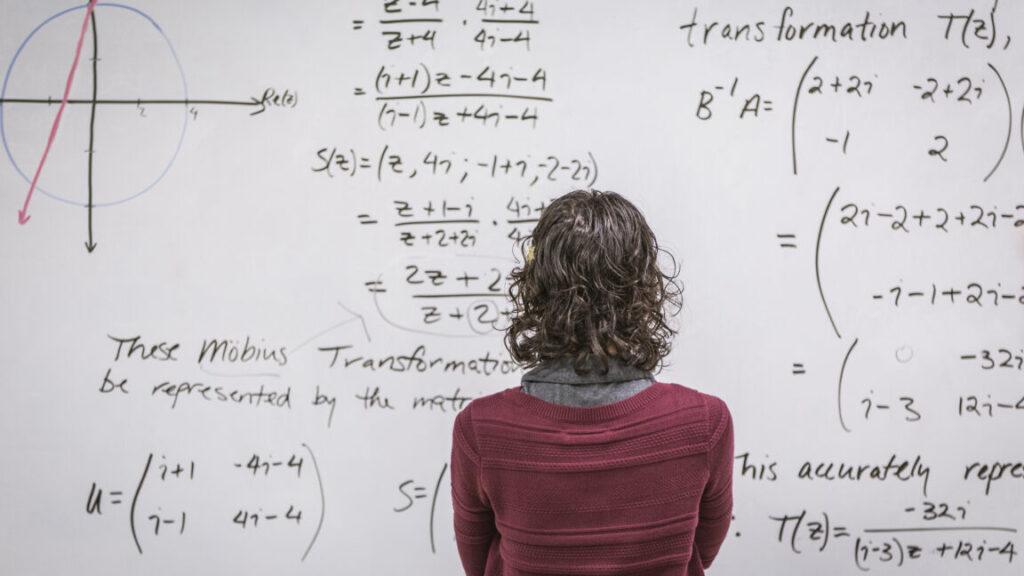 Re(z)
2
4
= z-4/z+4 · 4i+4/4i-4
= (i+1)z-4i-4/(i-1)z+4i-4
S(z)=(z,4i;-1+i,-2-2i)
= z+1-i/z+2+2i ·
= 2z+2/z+2
These Möbius Transformation
be represented by the
U= (i+1 -4i-4
i-1 4i-4)
S=(
transformation T(z),
B⁻¹A= (2+2i -2+2i
-1 2)
= (2i-2+2+2i-2
-i-1+2i-2
= (0 -32i
i-3 12i-4
his accurately repres
T(z)= -32i/(i-3)z+12i-4